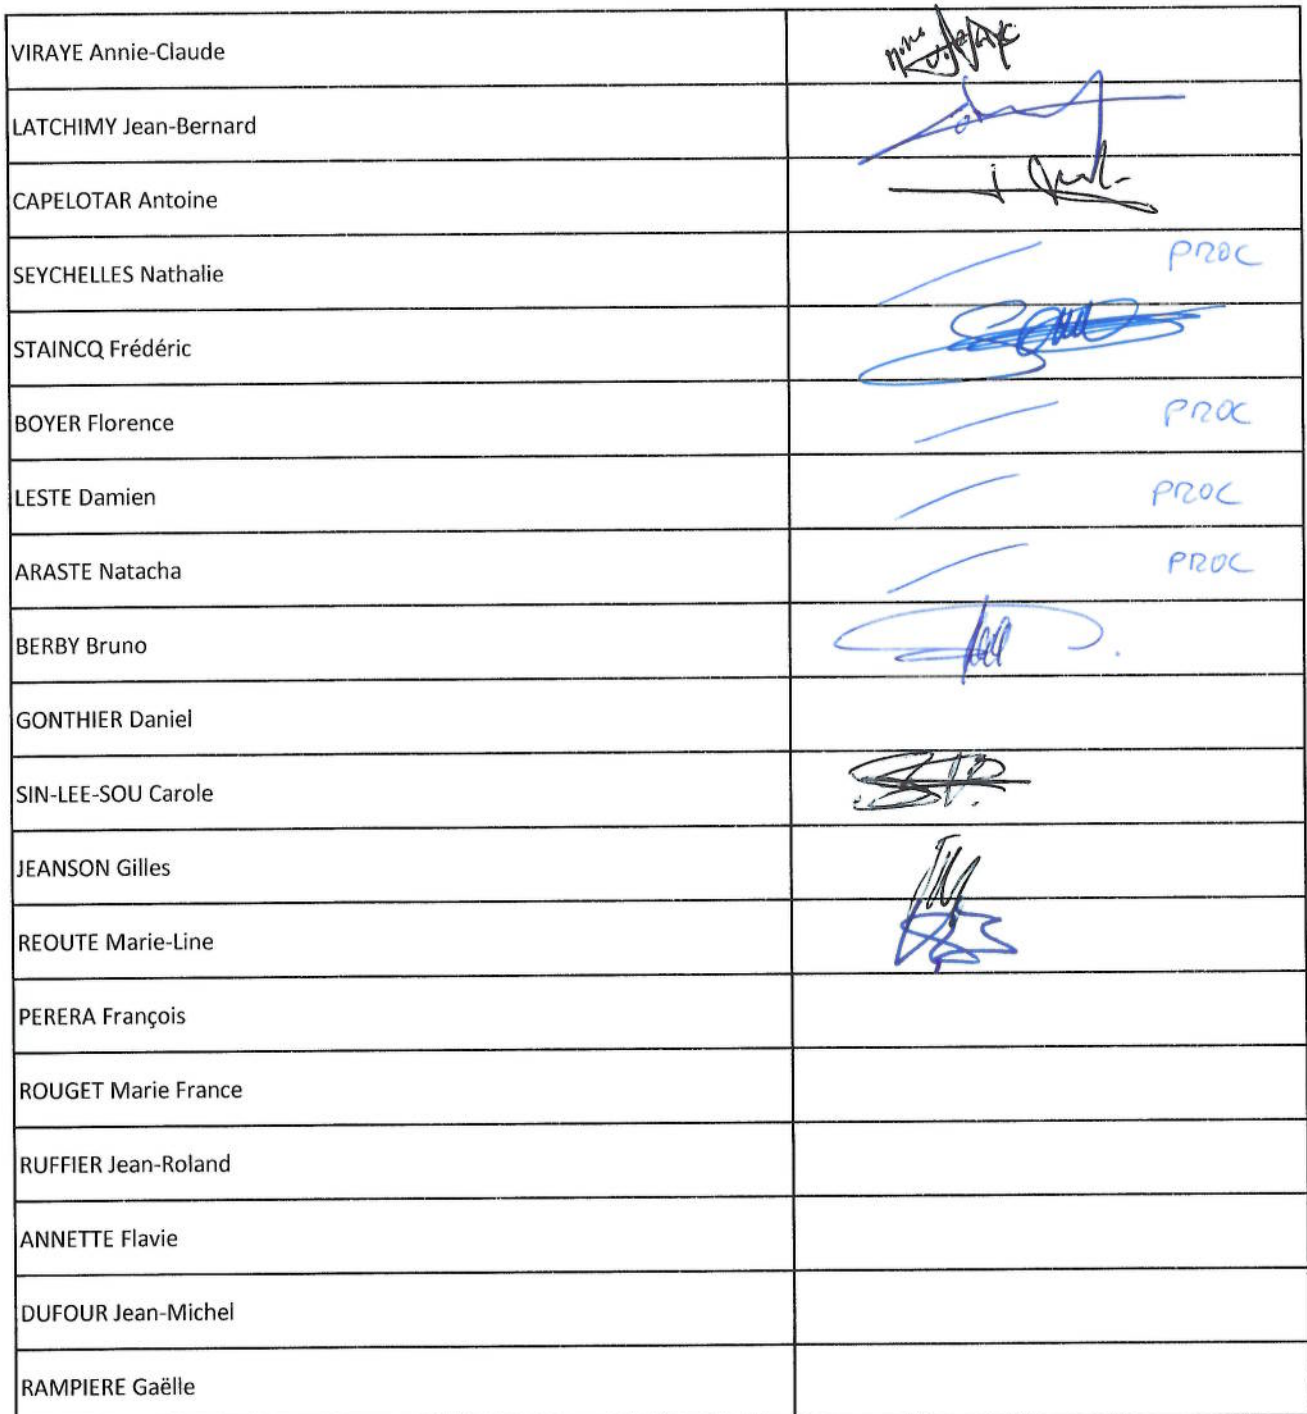 VIRAYE Annie-Claude
LATCHIMY Jean-Bernard
CAPELOTAR Antoine
SEYCHELLES Nathalie PROC
STAINCQ Frédéric
BOYER Florence PROC
LESTE Damien PROC
ARASTE Natacha PROC
BERBY Bruno
GONTHIER Daniel
SIN-LEE-SOU Carole
JEANSON Gilles
REOUTE Marie-Line
PERERA François
ROUGET Marie France
RUFFIER Jean-Roland
ANNETTE Flavie
DUFOUR Jean-Michel
RAMPIERE Gaëlle